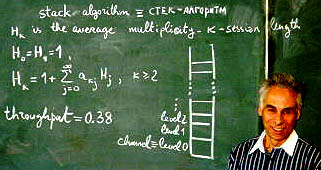 stack algorithm ≡ СТЕК-АЛГОРИТМ
H_k is the average multiplicity k-session length
H_0=H_1=1,
H_k = 1 + ∑_{j=0}^{∞} a_{kj} H_j, k≥2
throughput=0.38
level 2
level 1
channel≡level 0